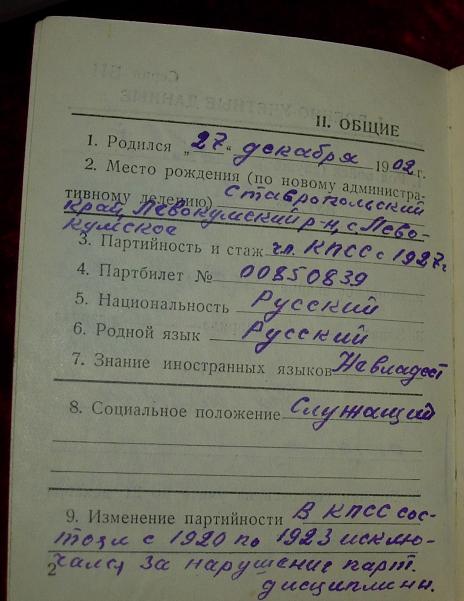 II. ОБЩИЕ
1. Родился „27“ декабря 1902 г.
2. Место рождения (по новому администра-
тивному делению) Ставропольский
край, Левокумский р-н, с. Лево-
кумское
3. Партийность и стаж чл. КПСС с 1927 г.
4. Партбилет № 00850839
5. Национальность Русский
6. Родной язык Русский
7. Знание иностранных языков Не владеет
8. Социальное положение Служащий
9. Изменение партийности В КПСС сос-
тоял с 1920 по 1923 исклю-
чался за нарушение парт.
дисциплин.
2